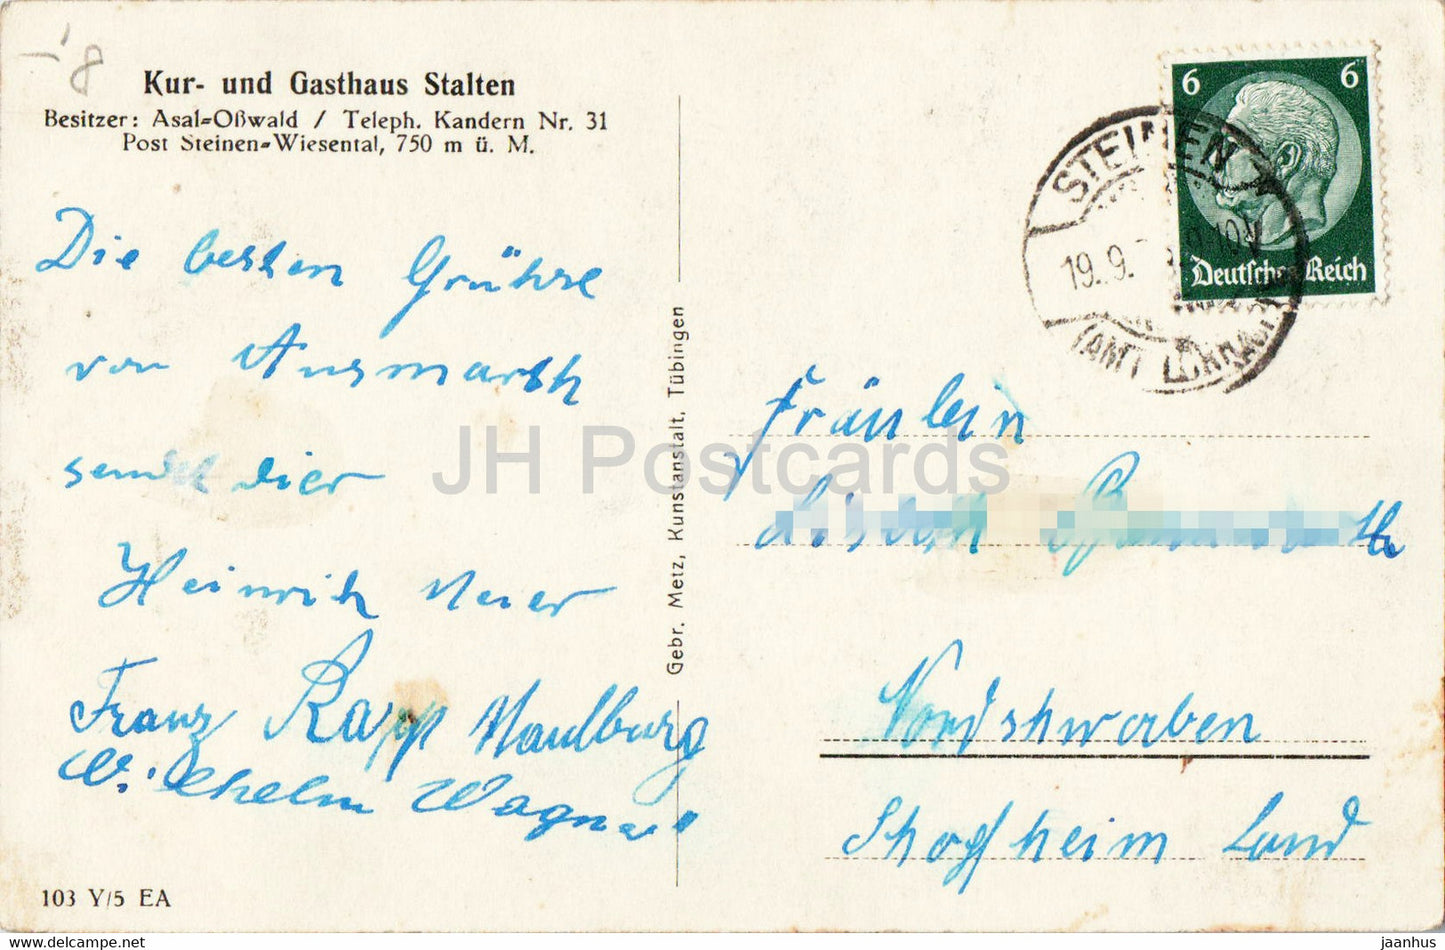 Kur- und Gasthaus Stalten
Besitzer: Asal-Oßwald / Teleph. Kandern Nr. 31
Post Steinen-Wiesental, 750 m ü. M.
Die besten Grühse
von Ausmarsch
sendet dier
Heinrich Meier
Franz Rapp Maulburg
Wilhelm Wagner
103 Y/5 EA
Gebr. Metz, Kunstanstalt, Tübingen
6 6
Deutsches Reich
STEINEN
19.9.
(AMT LÖRRACH)
Fräulein
Nordshwaben
Shopfheim Land
JH Postcards
https://www.delcampe.net
jaanhus